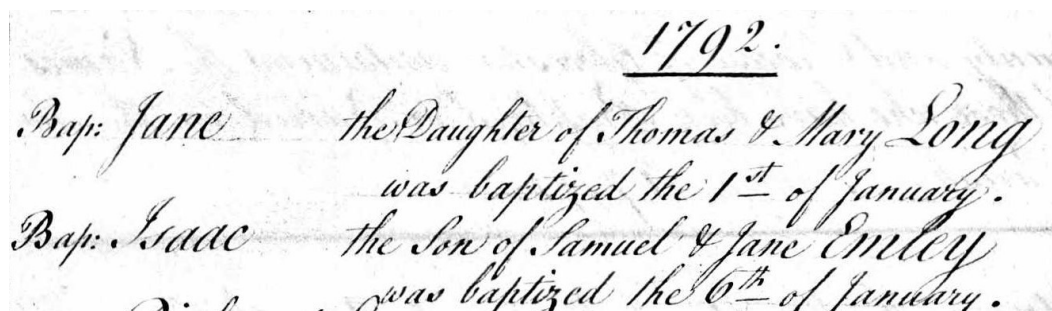 1792.
Bap: Jane the Daughter of Thomas & Mary Long
was baptized the 1st of January.
Bap: Isaac the Son of Samuel & Jane Emley
was baptized the 6th of January.